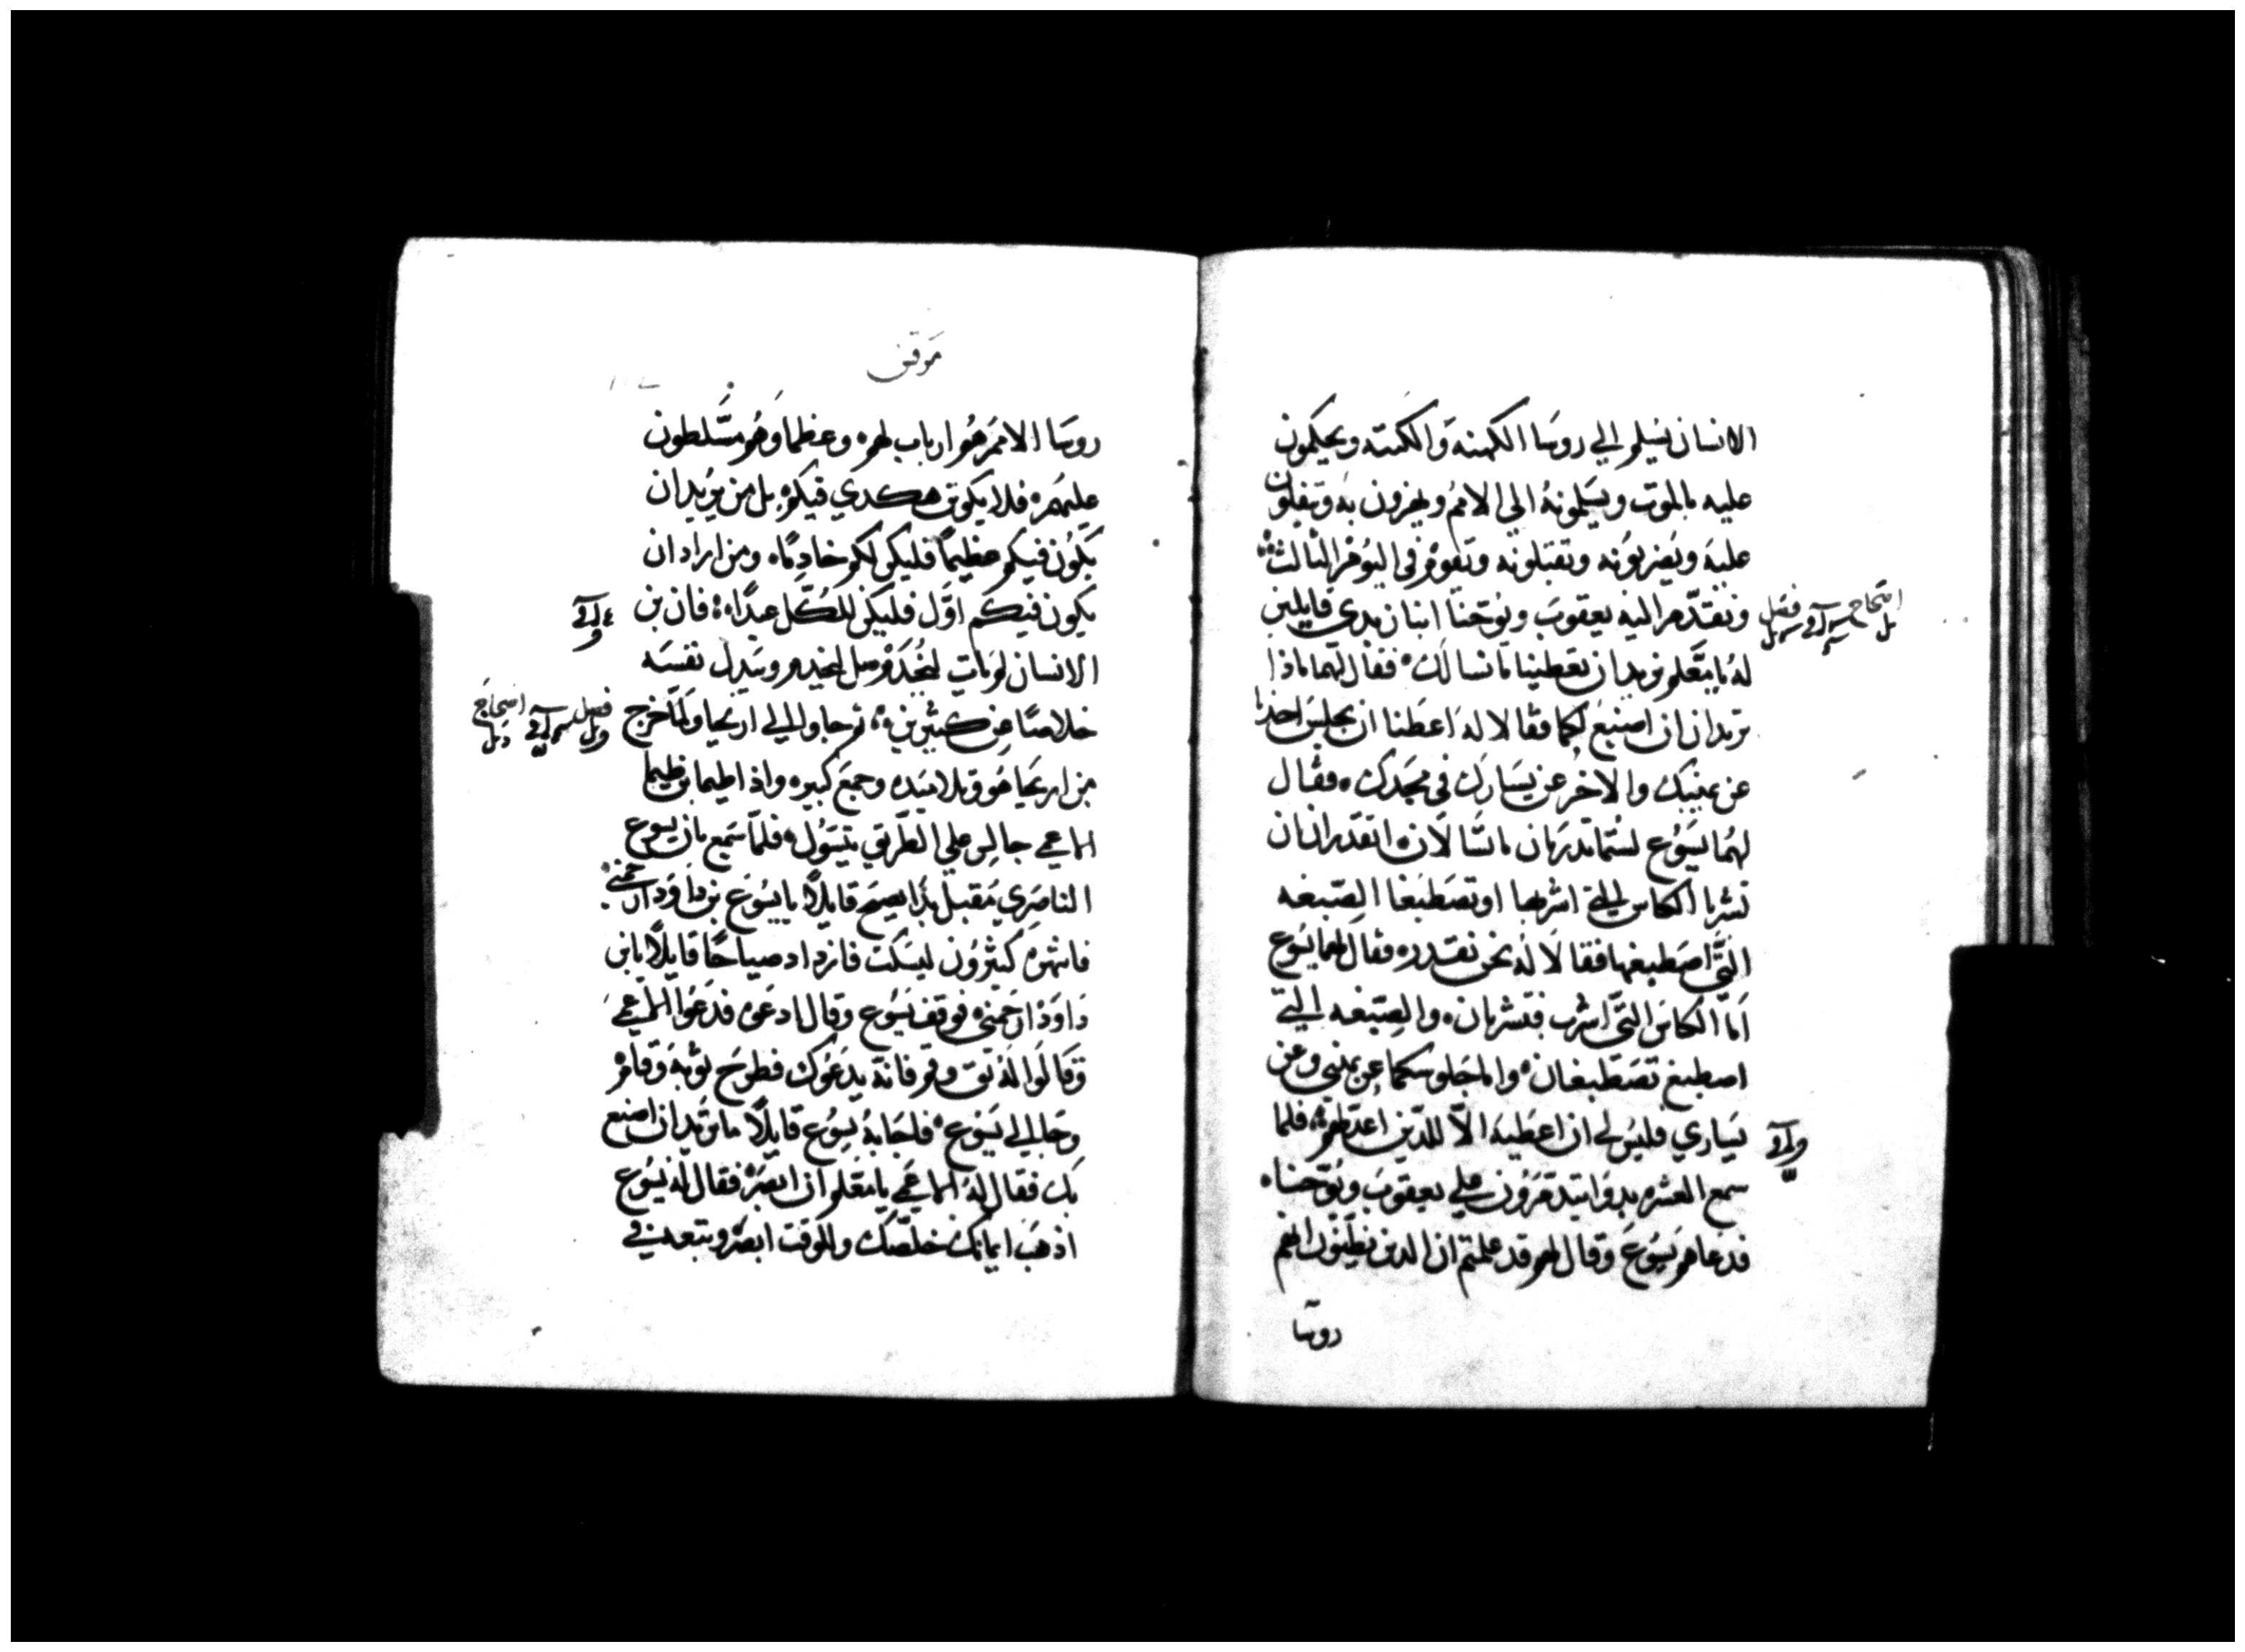 الانسان يسلم الي روسا الكهنه والكتبه ويحكمون
عليه بالموت ويسلمونهُ الي الامم ويهزون به ويتفلون
عليه ويضربونه ويقتلونه ويقوم في اليوم الثالث
وتقدم اليه يعقوب ويوحنا ابنا زبدي قايلين
لهُ يا معلم نريد ان تعطينا ما نسالك فقال لهما ماذا
تريدان ان اصنع لكما فقالا له اعطنا ان يجلس احدنا
عن يمينك والاخر عن يسارك في مجدك فقال
لهما يسوع لستما تدريان ما تسالان اتقدران ان
تشربا الكاس التي اشربها او تصطبغا الصبغه
التي اصطبغها فقالا له نحن نقدر فقال لهما يسوع
اما الكاس التي اشرب فتشربان والصبغه التي
اصطبغ تصطبغان واما جلوسكما عن يميني وعن
يساري فليس لي ان اعطيه الا للذين اعد لهم فلما
سمع العشره بدوا يتدمرون علي يعقوب ويوحنا
فدعاهم يسوع وقال لهم قد علمتم ان الدين يظنون انهم
روسا
اصحاح
فصل
مرقس
روسا الامم هم ارباب لهم وعظماوهم مسلطون
عليهم فلا يكون هكدي فيكم بل من يريد ان
يكون فيكم عظيماً فليكن لكم خادماً ومن اراد ان
يكون فيكم اول فليكن للكل عبداً فان بن
الانسان لم يات ليخدم بل ليخدم ويبدل نفسه
خلاصًا عن كثيرين ثم جاوا الي اريحا ولما خرج
من اريحا هو وتلاميده وجمع كبير واذا طيما بن طيما
الاعمي جالس علي الطريق يتسول فلما سمع بان يسوع
الناصري مقبل بدا يصيح قايلاً يا يسوع بن داود ارحمني
فانتهره كثيرون ليسكت فازداد صياحًا قايلاً يا بن
داود ارحمني فوقف يسوع وقال ادعوه فدعوا الاعمي
وقالوا له ثق وقم فانه يدعوك فطرح ثوبه وقام
وجا الي يسوع فاجابهُ يسوع قايلاً ما تريد ان اصنع
بك فقال له الاعمي يا معلم ان ابصر فقال له يسوع
اذهب ايمانك خلصك وللوقت ابصر وتبعه في
فصل
اصحاح